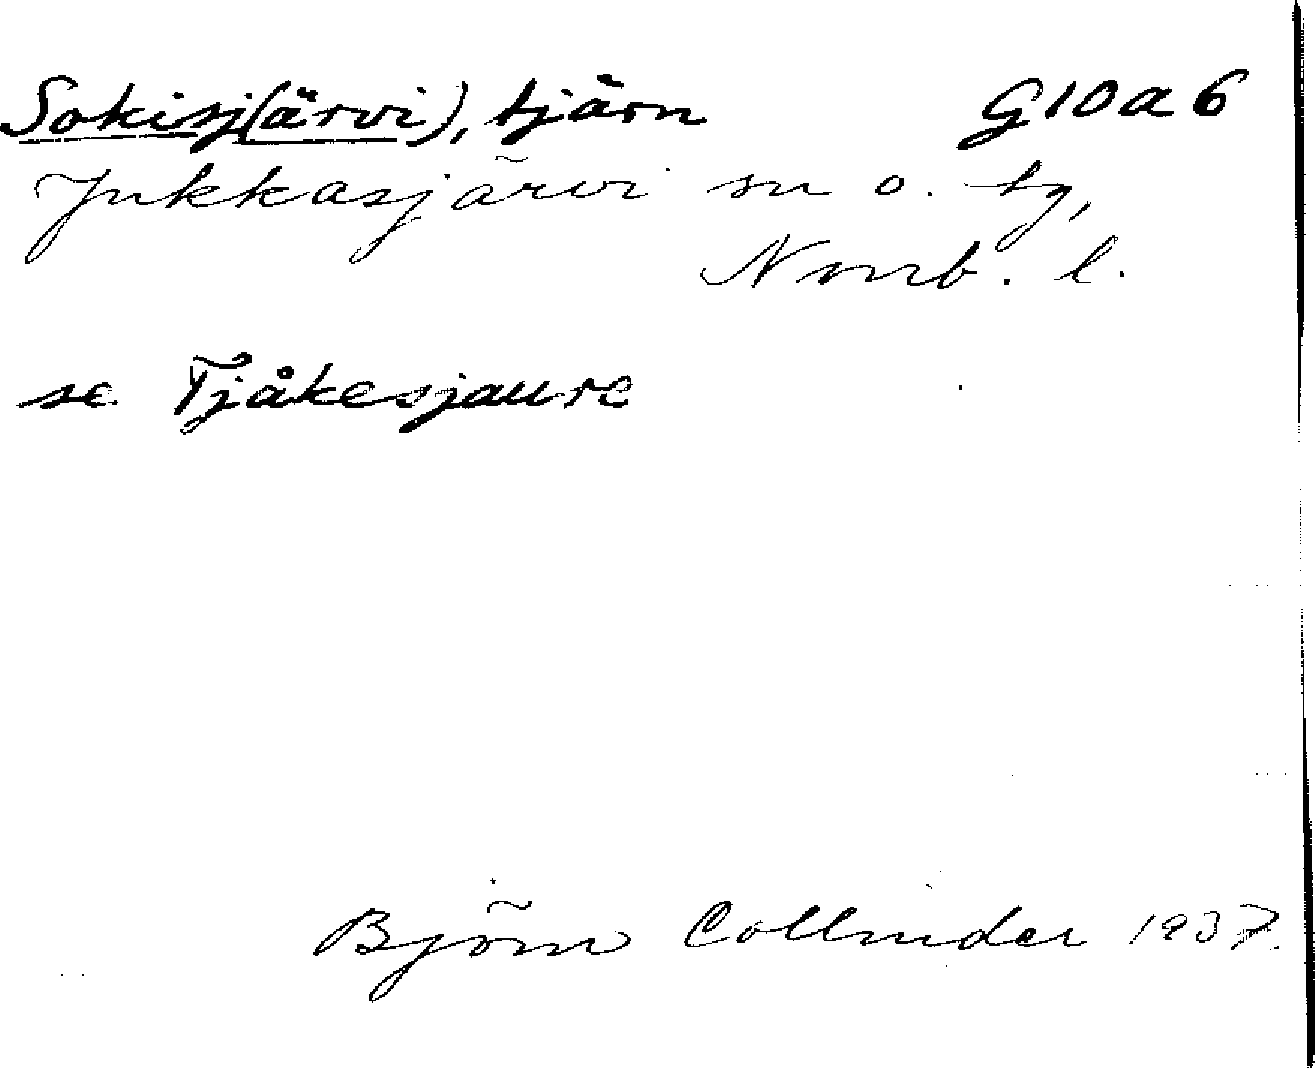 Sokisj(ärvi), tjärn G10a6
Jukkasjärvi sn o. tg,
Norrb. l.
se Tjåkesjaure
Björn Collinder 1937.